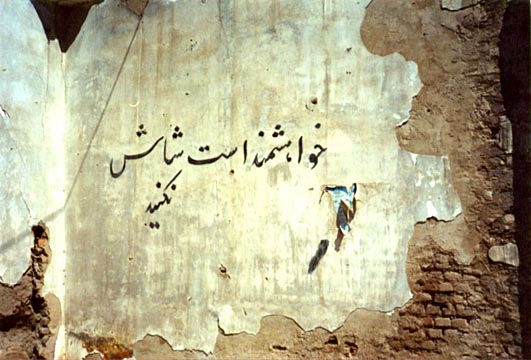 خواهشمند است شاش
نکنید